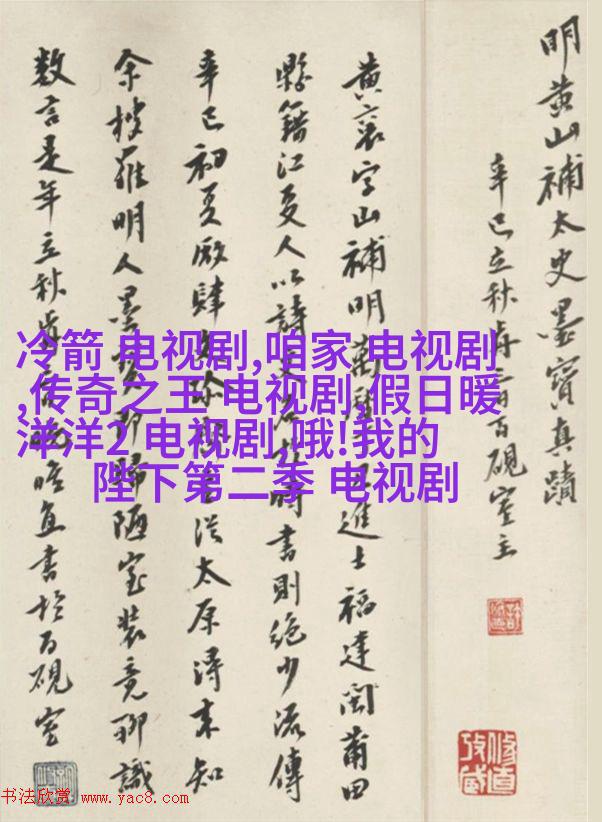 明黄山補太史墨寶真蹟
辛巳立秋百硯室主
黄衮字山補明進士福建閩莆田
縣籍江夏人以詩時書則絶少流傳
辛巳初夏厰肆従太原淂来知
余搜羅明人墨即歸陋室装竟聊識
数言是年立秋書於百硯室
冷箭 电视剧,咱家 电视剧
,传奇之王 电视剧,假日暖
洋洋2 电视剧,哦!我的
陛下第二季 电视剧
书法欣赏 www.yac8.com